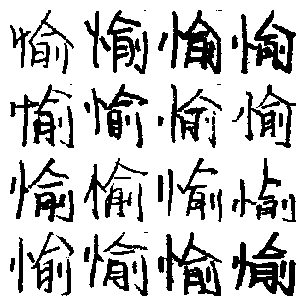 愉愉愉愉
愉愉愉愉
愉愉愉愉
愉愉愉愉